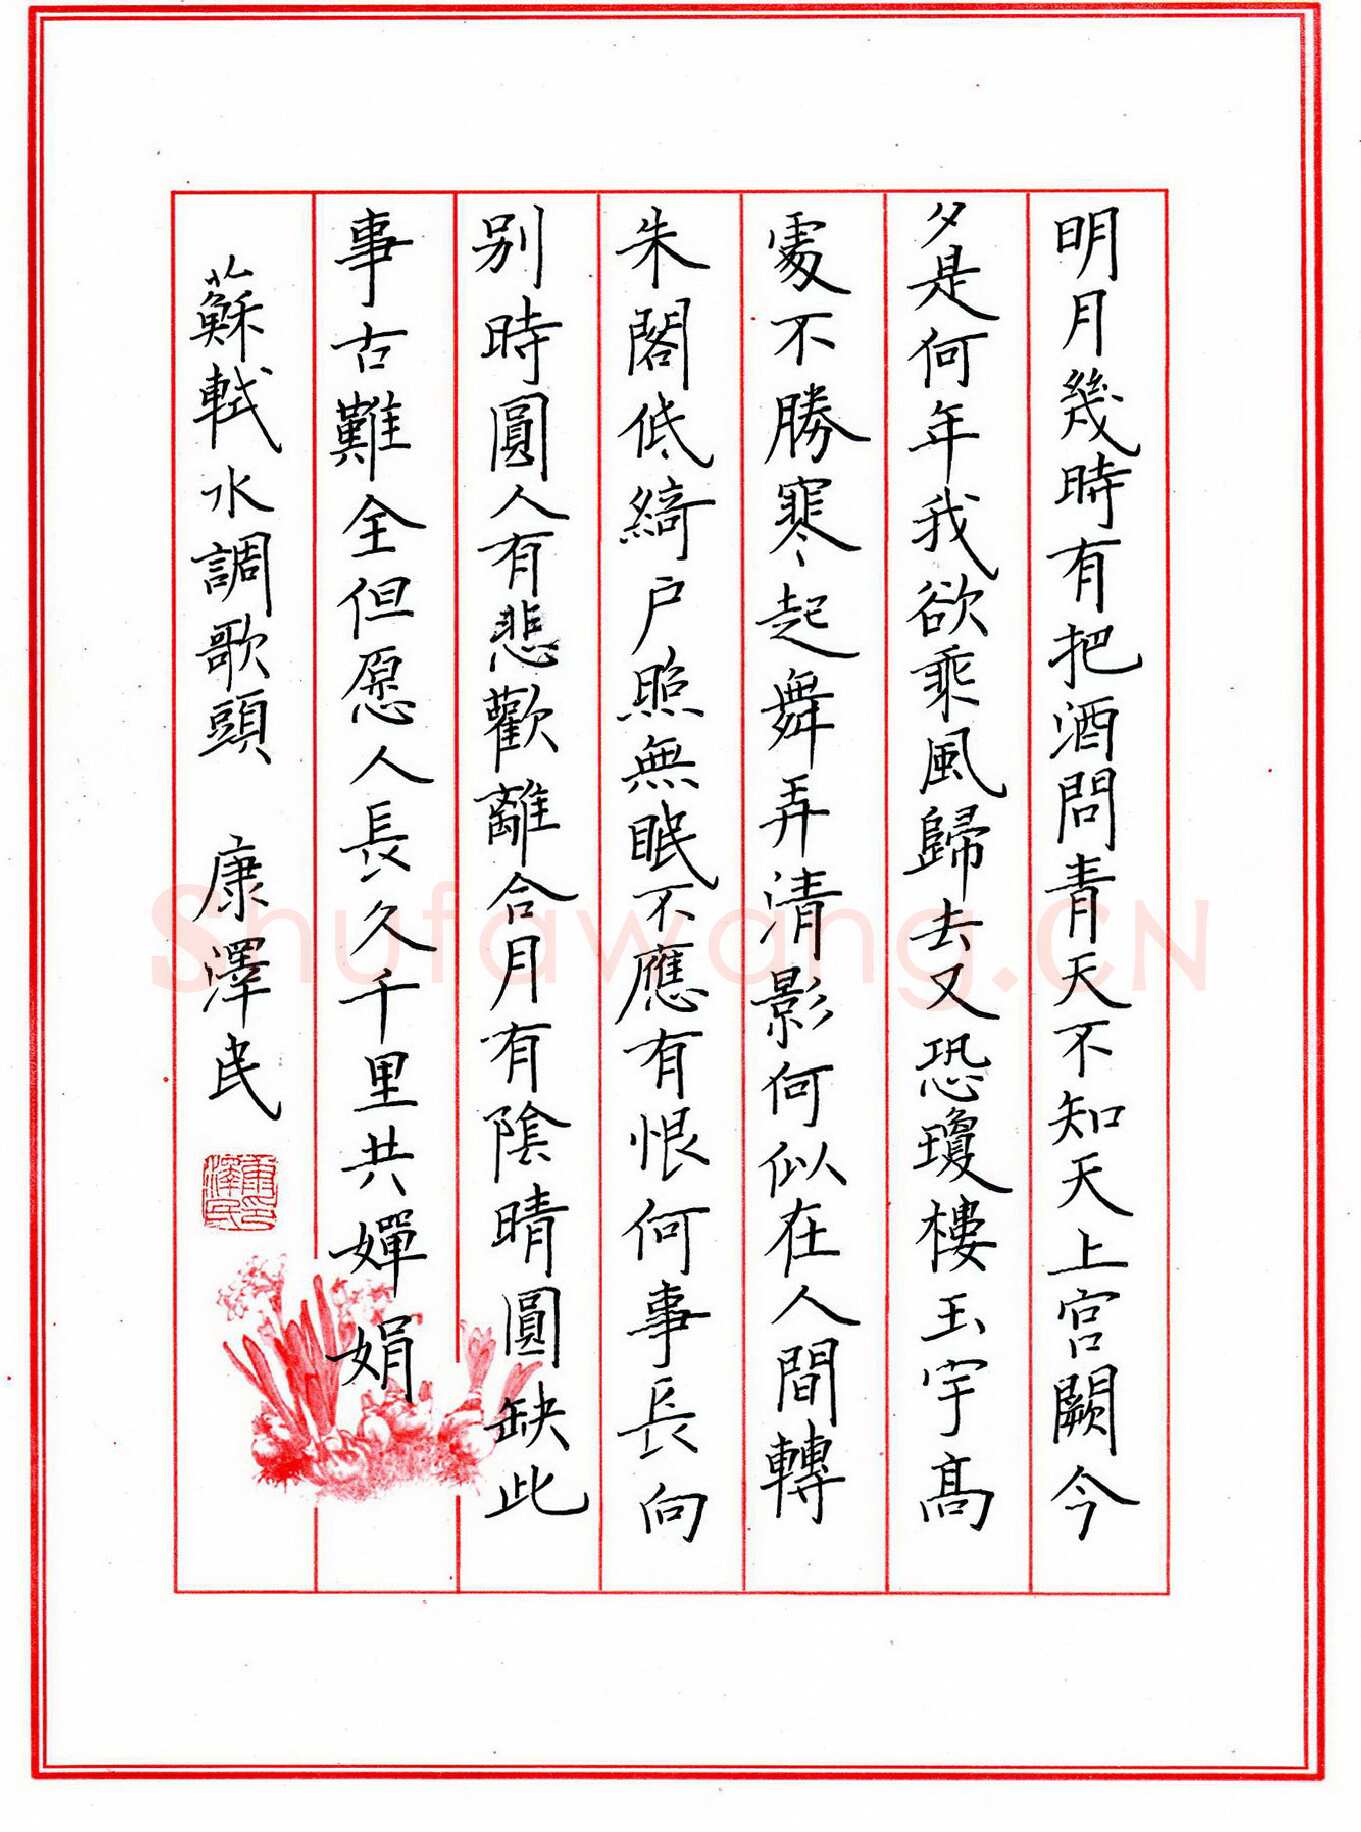 明月幾時有把酒問青天不知天上宫闕今
夕是何年我欲乘風歸去又恐瓊樓玉宇高
處不勝寒起舞弄清影何似在人間轉
朱閣低綺户照無眠不應有恨何事長向
别時圓人有悲歡離合月有陰晴圓缺此
事古難全但愿人長久千里共嬋娟
蘇軾水調歌頭 康澤民
康澤民印
Shufawang.CN